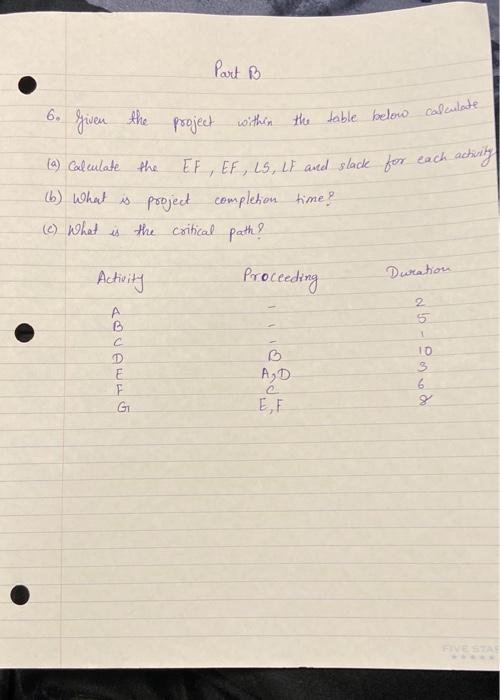 Part B
6. Given the project within the table below calculate
(a) Calculate the EF, EF, LS, LF and slack for each activity
(b) What is project completion time?
(c) What is the critical path?
Activity Proceeding Duration
A - 2
B - 5
C - 1
D B 10
E A,D 3
F C 6
G E,F 8
FIVE STAR